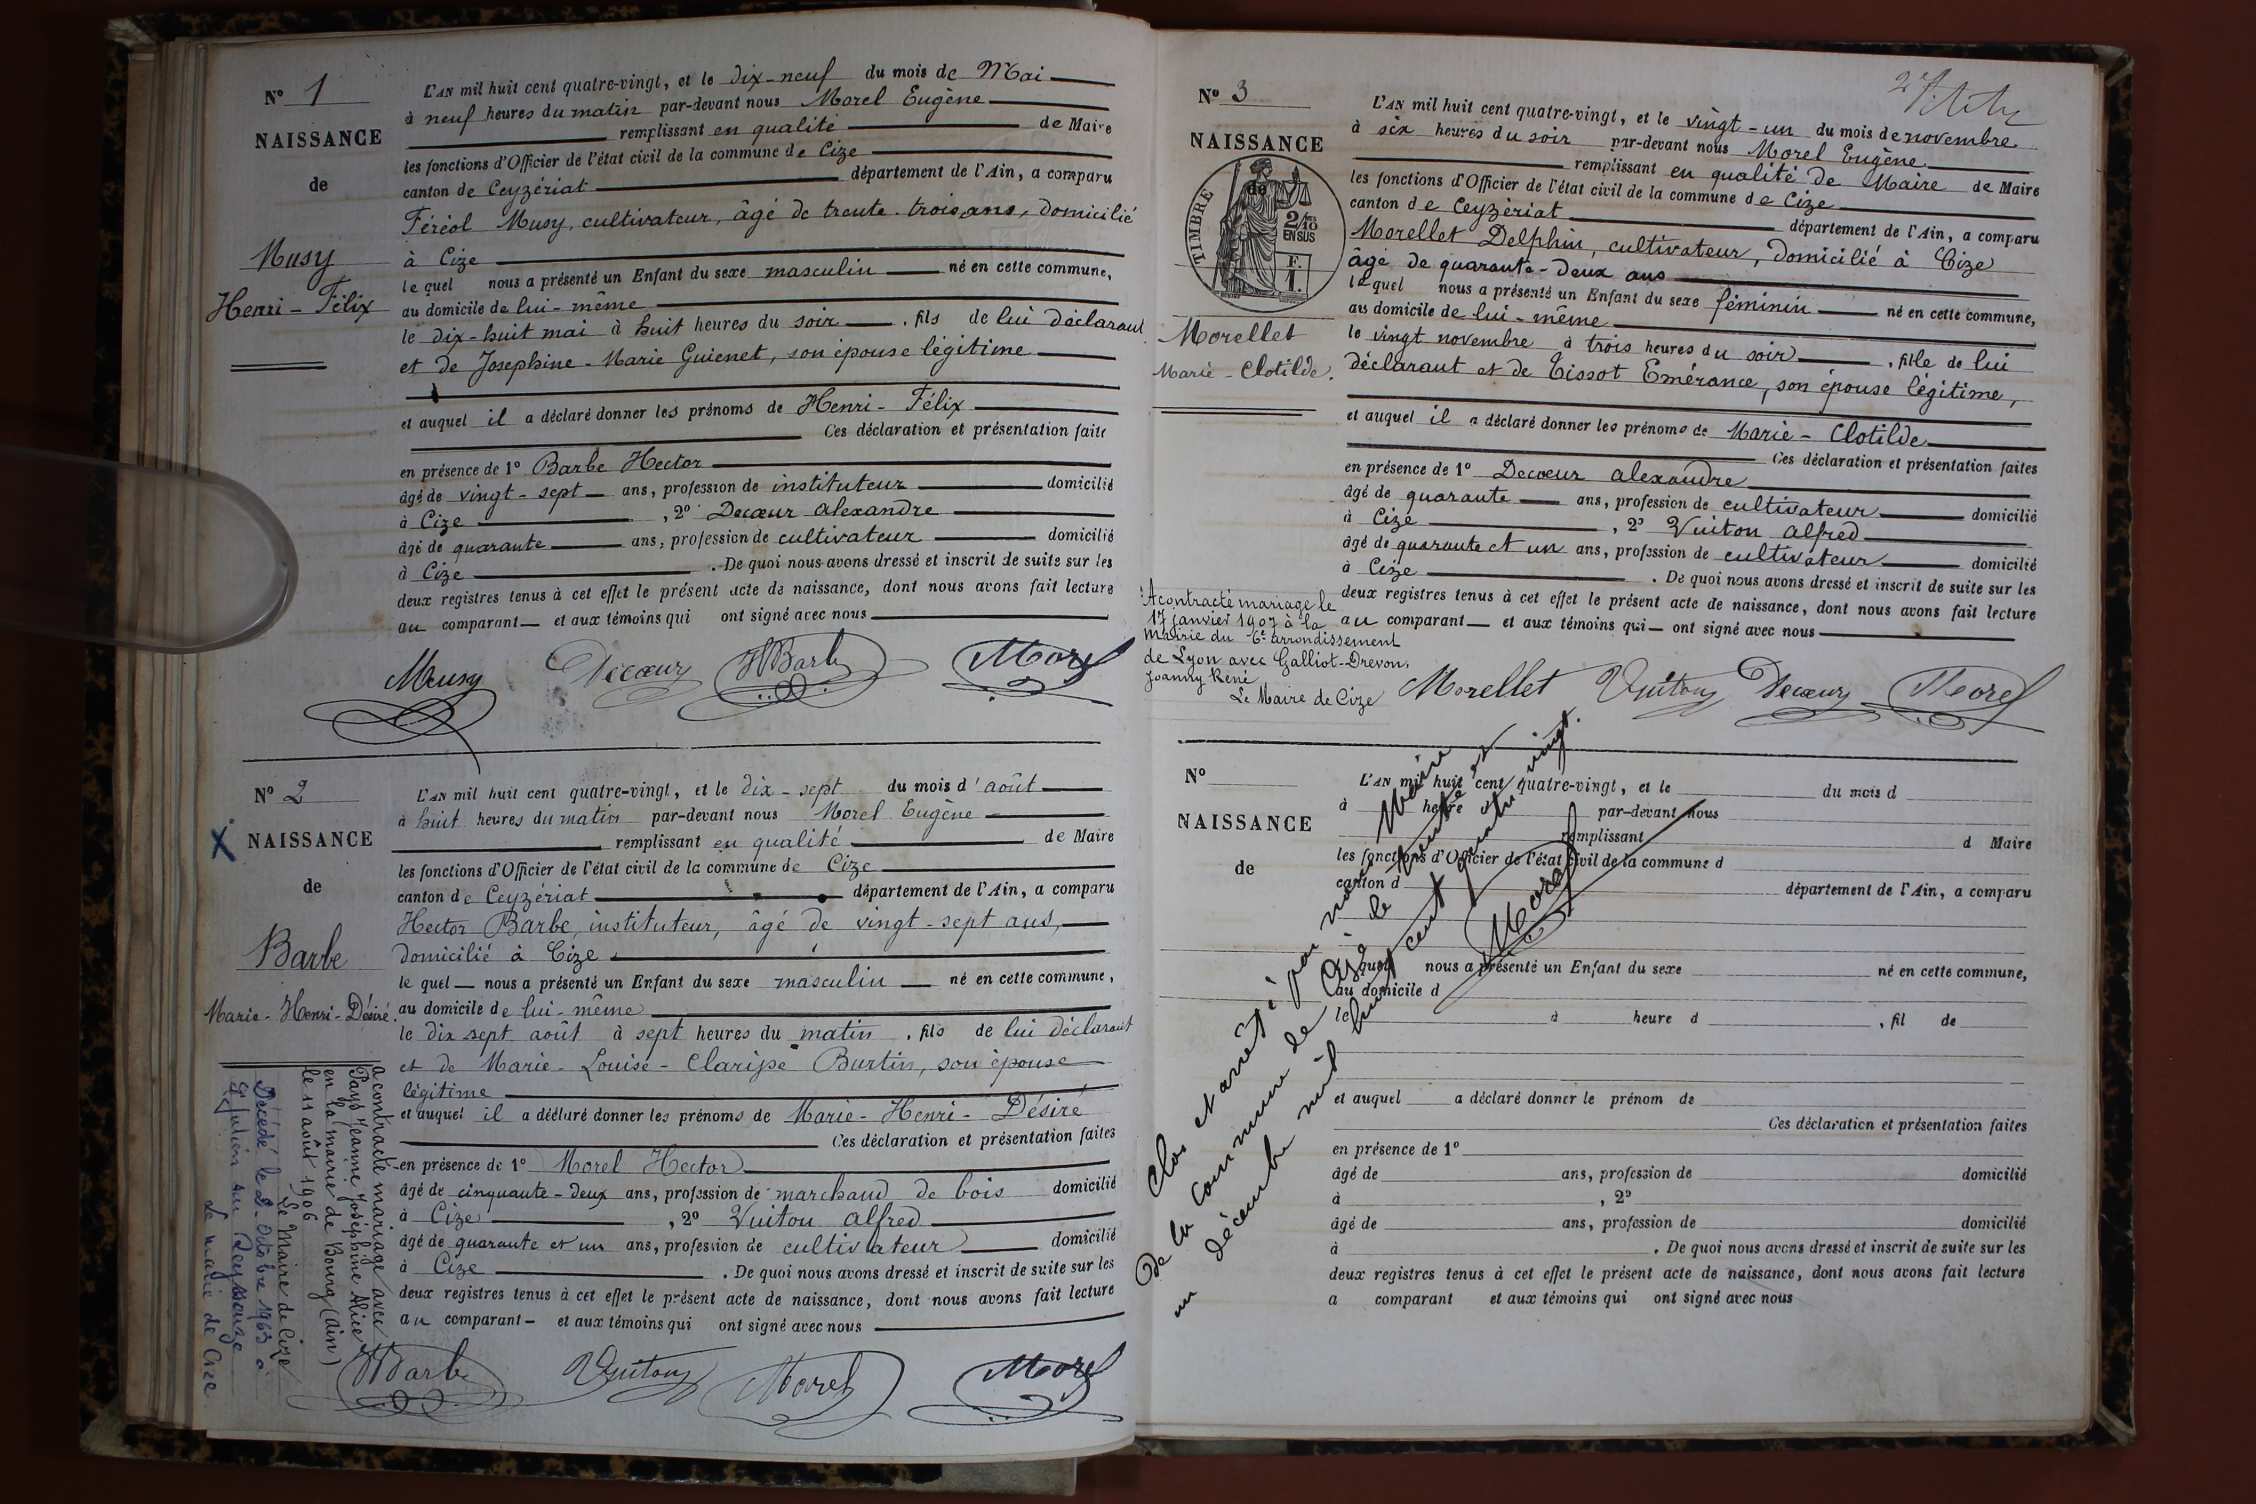 N° 1
NAISSANCE
de
Musy
Henri - Félix
L'AN mil huit cent quatre-vingt, et le dix-neuf du mois de Mai
à neuf heures du matin par-devant nous Morel Eugène
remplissant en qualité de Maire
les fonctions d'Officier de l'état civil de la commune de Cize
canton de Ceyzériat département de l'Ain, a comparu
Féréol Musy, cultivateur, âgé de trente-trois ans, domicilié
à Cize
le quel nous a présenté un Enfant du sexe masculin né en cette commune,
au domicile de lui-même
le dix-huit mai à huit heures du soir, fils de lui déclarant
et de Josephine-Marie Guienet, son épouse légitime
et auquel il a déclaré donner les prénoms de Henri-Félix
Ces déclaration et présentation faite
en présence de 1° Barbe Hector
âgé de vingt-sept ans, profession de instituteur domicilié
à Cize, 2° Decœur alexandre
âgé de quarante ans, profession de cultivateur domicilié
à Cize. De quoi nous avons dressé et inscrit de suite sur les
deux registres tenus à cet effet le présent acte de naissance, dont nous avons fait lecture
au comparant et aux témoins qui ont signé avec nous
Musy Decœur HBarbe Morel
N° 2
X
NAISSANCE
de
Barbe
Marie-Henri-Désiré.
L'AN mil huit cent quatre-vingt, et le dix-sept du mois d'août
à huit heures du matin par-devant nous Morel Eugène
remplissant en qualité de Maire
les fonctions d'Officier de l'état civil de la commune de Cize
canton de Ceyzériat département de l'Ain, a comparu
Hector Barbe, instituteur, âgé de vingt-sept ans,
domicilié à Cize
le quel nous a présenté un Enfant du sexe masculin né en cette commune,
au domicile de lui-même
le dix sept août à sept heures du matin, fils de lui déclarant
et de Marie-Louise-Clarisse Burtin, son épouse
légitime
et auquel il a déclaré donner les prénoms de Marie-Henri-Désiré
Ces déclaration et présentation faites
en présence de 1° Morel Hector
âgé de cinquante-deux ans, profession de marchand de bois domicilié
à Cize, 2° Vuiton alfred
âgé de quarante et un ans, profession de cultivateur domicilié
à Cize. De quoi nous avons dressé et inscrit de suite sur les
deux registres tenus à cet effet le présent acte de naissance, dont nous avons fait lecture
au comparant et aux témoins qui ont signé avec nous
HBarbe Vuiton Morel Morel
a contracté mariage avec
Pays Jeanne Joséphine Alice
en la mairie de Bourg (Ain)
le 11 août 1906
Le Maire de Cize
Décédé le 2 Octobre 1963 à
St Julien sur Reyssouze
Le maire de Cize
N° 3
NAISSANCE
de
TIMBRE
2/10 EN SUS
F.
1.
Morellet
Marie-Clotilde.
L'AN mil huit cent quatre-vingt, et le vingt-un du mois de novembre
à six heures du soir par-devant nous Morel Eugène
remplissant en qualité de Maire de Maire
les fonctions d'Officier de l'état civil de la commune de Cize
canton de Ceyzériat département de l'Ain, a comparu
Morellet Delphin, cultivateur, domicilié à Cize
âgé de quarante-deux ans
le quel nous a présenté un Enfant du sexe féminin né en cette commune,
au domicile de lui-même
le vingt novembre à trois heures du soir, fille de lui
déclarant et de Tissot Emérance, son épouse légitime,
et auquel il a déclaré donner les prénoms de Marie-Clotilde
Ces déclaration et présentation faites
en présence de 1° Decœur alexandre
âgé de quarante ans, profession de cultivateur domicilié
à Cize, 2° Vuiton alfred
âgé de quarante et un ans, profession de cultivateur domicilié
à Cize. De quoi nous avons dressé et inscrit de suite sur les
deux registres tenus à cet effet le présent acte de naissance, dont nous avons fait lecture
au comparant et aux témoins qui ont signé avec nous
A contracté mariage le
17 janvier 1907 à la
mairie du 6e arrondissement
de Lyon avec Galliot-Drevon,
Joanny René
Le Maire de Cize
Morellet Vuiton Decœur Morel
N°
NAISSANCE
de
L'AN mil huit cent quatre-vingt, et le du mois d
à heure d par-devant nous
remplissant d Maire
les fonctions d'Officier de l'état civil de la commune d
canton d département de l'Ain, a comparu
quel nous a présenté un Enfant du sexe né en cette commune,
au domicile d
le à heure d, fil de
et auquel a déclaré donner le prénom de
Ces déclaration et présentation faites
en présence de 1°
âgé de ans, profession de domicilié
à, 2°
âgé de ans, profession de domicilié
à. De quoi nous avons dressé et inscrit de suite sur les
deux registres tenus à cet effet le présent acte de naissance, dont nous avons fait lecture
a comparant et aux témoins qui ont signé avec nous
Clos et arrêté par nous Maire
de la commune de Cize le trente et
un décembre mil huit cent quatre vingt.
Morel